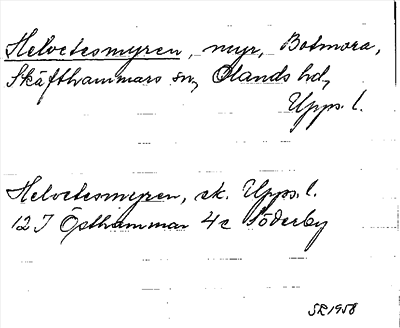 Helvetesmyren, myr, Botmora,
Skäfthammars sn, Olands hd,
Upps. l.
Helvetesmyren, ek. Upps. l.
12 I Östhammar 4c Söderby
SR 1958